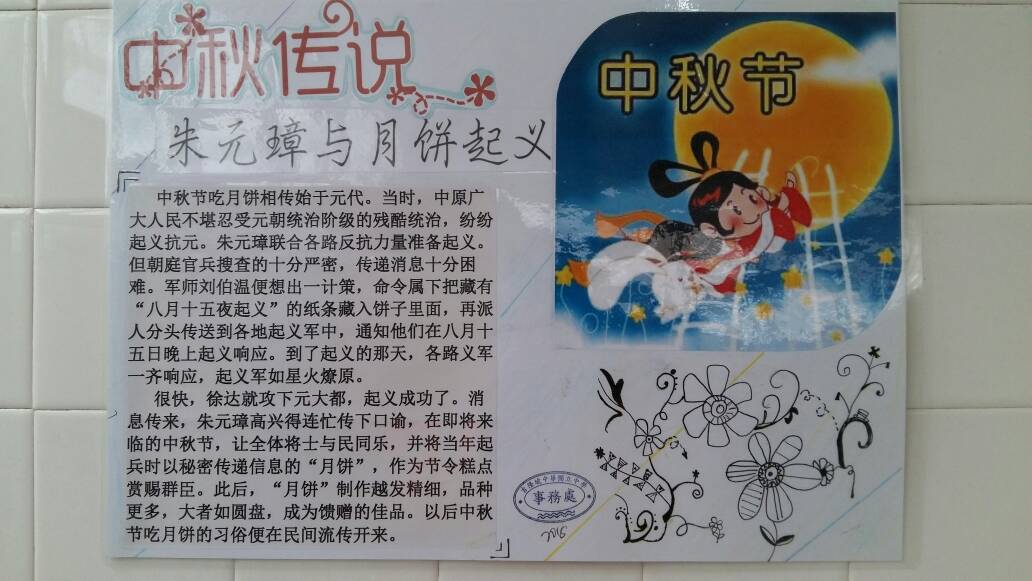 中秋传说
朱元璋与月饼起义
中秋节
中秋节吃月饼相传始于元代。当时，中原广
大人民不堪忍受元朝统治阶级的残酷统治，纷纷
起义抗元。朱元璋联合各路反抗力量准备起义。
但朝庭官兵搜查的十分严密，传递消息十分困
难。军师刘伯温便想出一计策，命令属下把藏有
“八月十五夜起义”的纸条藏入饼子里面，再派
人分头传送到各地起义军中，通知他们在八月十
五日晚上起义响应。到了起义的那天，各路义军
一齐响应，起义军如星火燎原。
很快，徐达就攻下元大都，起义成功了。消
息传来，朱元璋高兴得连忙传下口谕，在即将来
临的中秋节，让全体将士与民同乐，并将当年起
兵时以秘密传递信息的“月饼”，作为节令糕点
赏赐群臣。此后，“月饼”制作越发精细，品种
更多，大者如圆盘，成为馈赠的佳品。以后中秋
节吃月饼的习俗便在民间流传开来。
事務處
2016